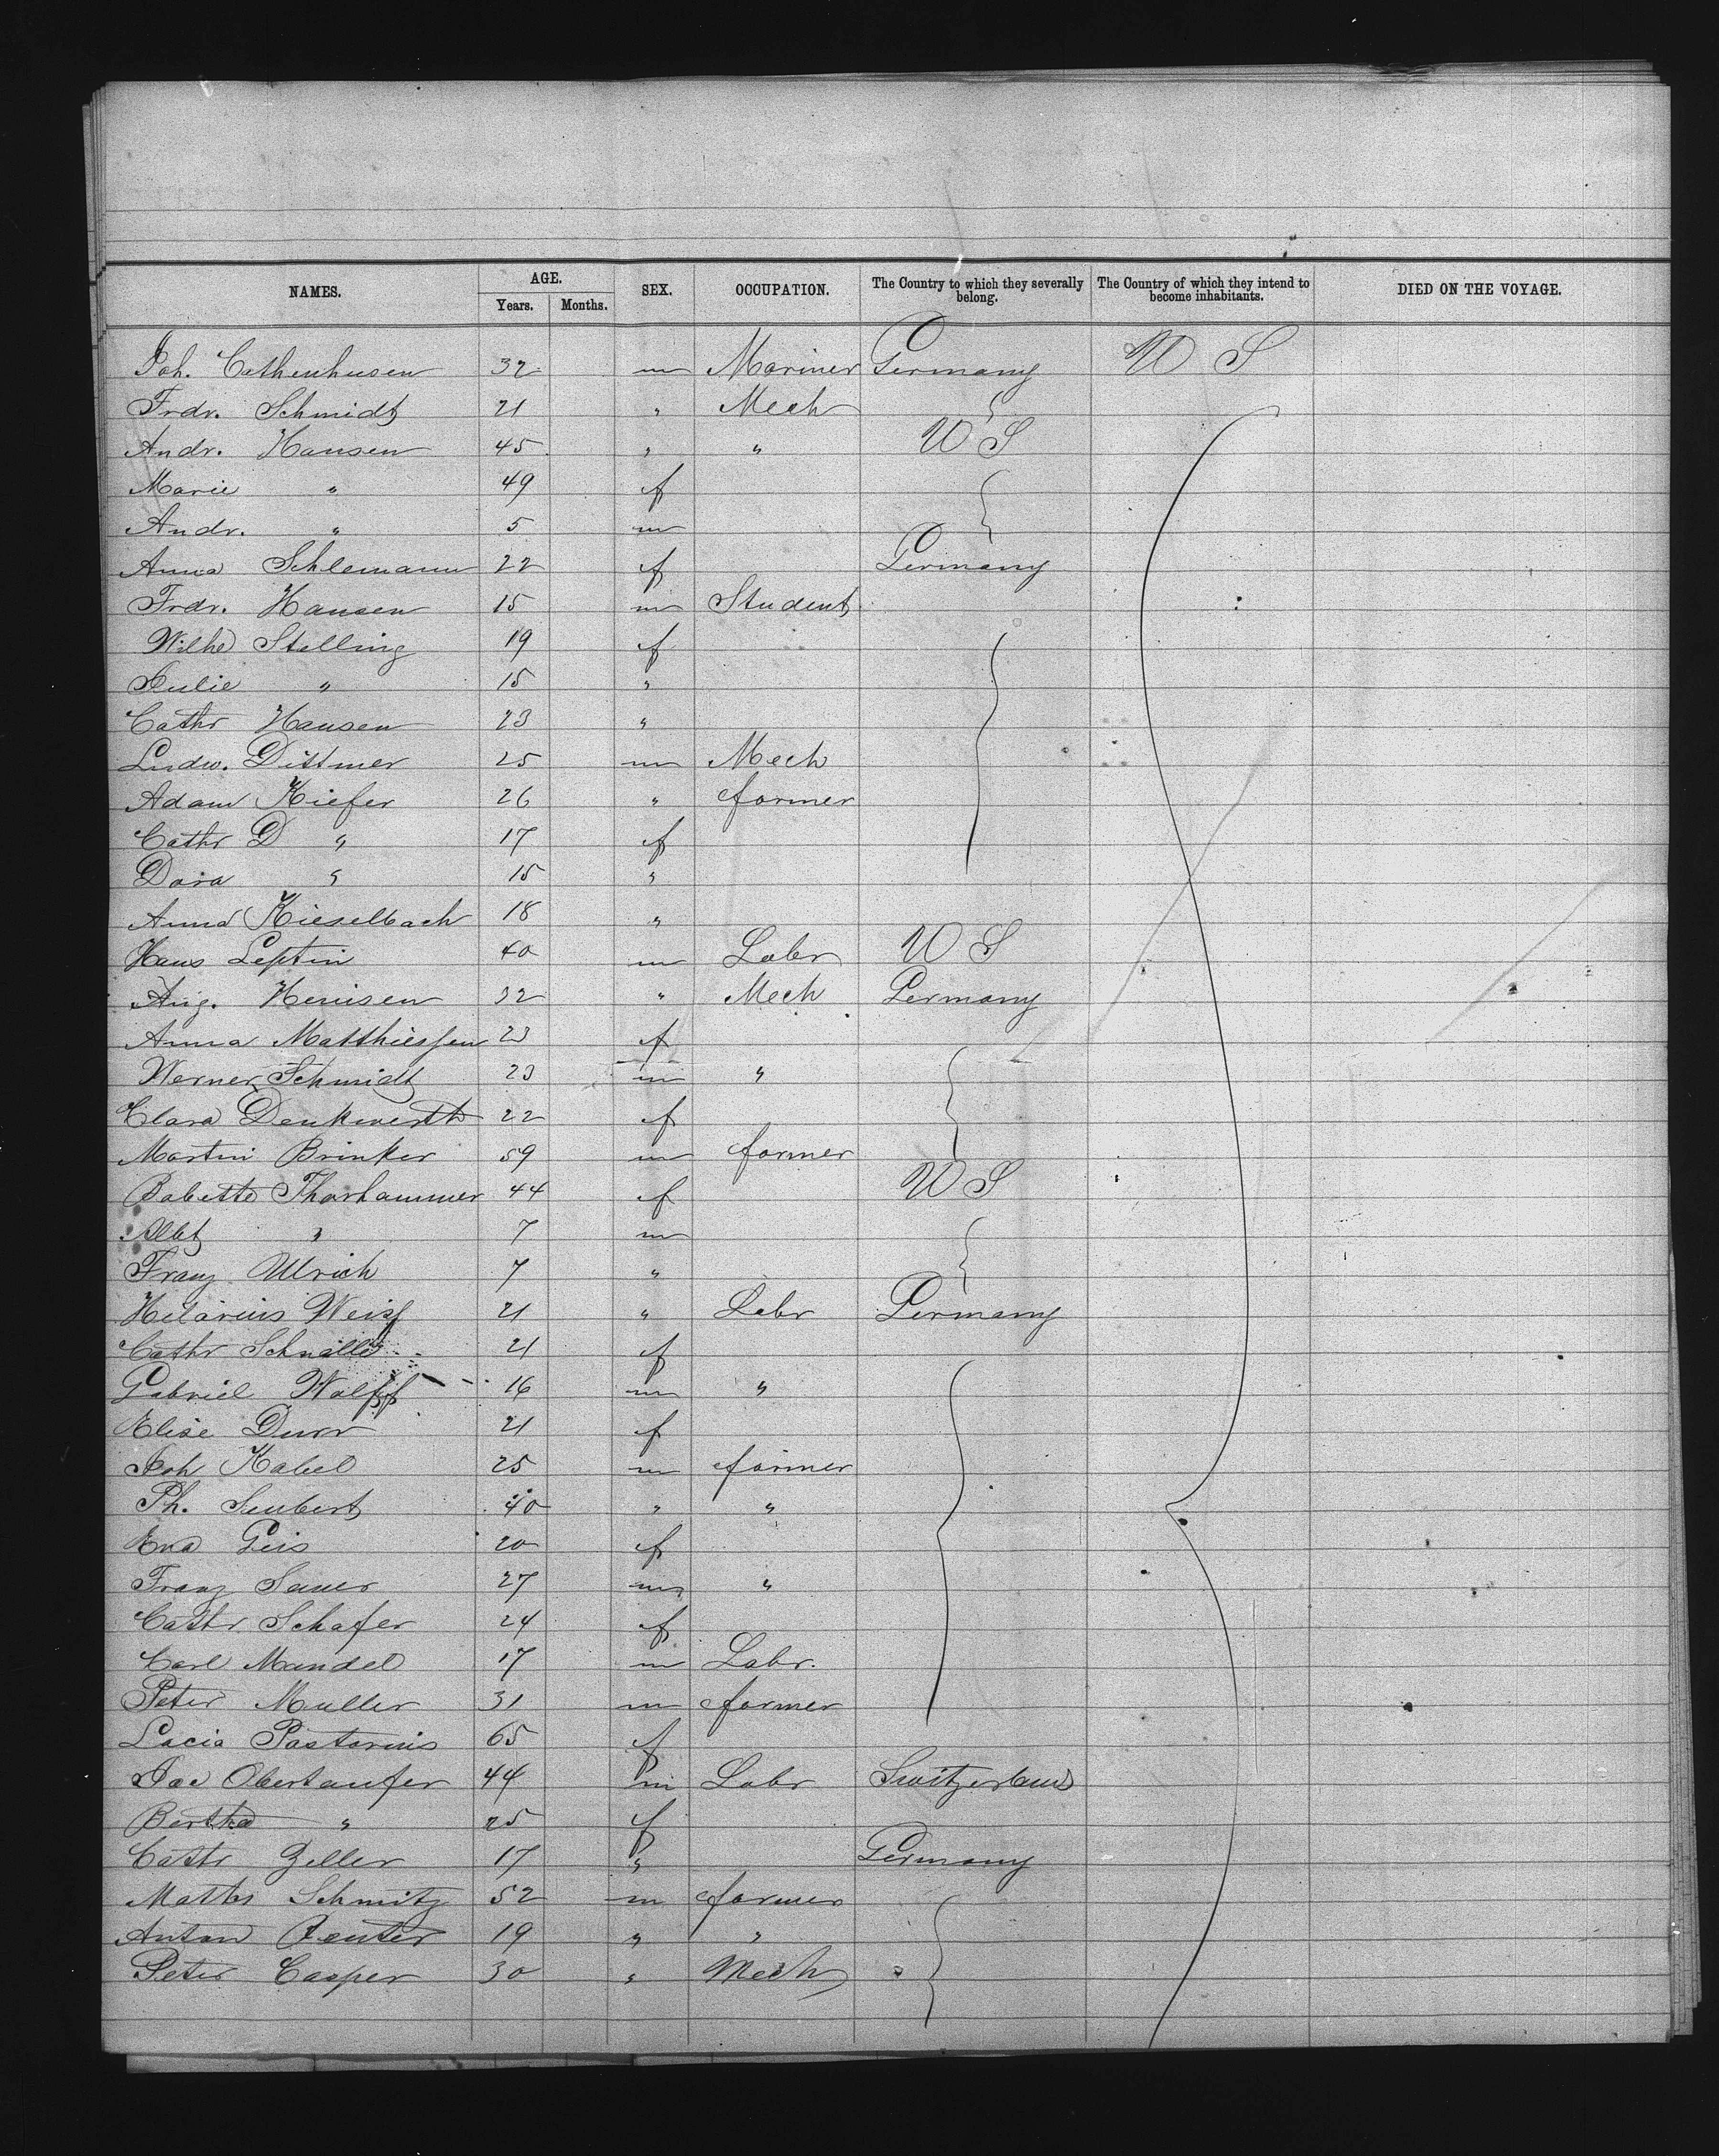 NAMES. AGE. SEX. OCCUPATION. The Country to which they severally belong. The Country of which they intend to become inhabitants. DIED ON THE VOYAGE.
Years. Months.
Joh. Cathenhusen 32 m Mariner Germany U S
Frdr. Schmidt 21 " Mech
Andr. Hansen 45 " " U S
Marie " 49 f
Andr. " 5 m
Anna Schlemann 22 f Germany
Frdr. Hansen 15 m Student
Wilhe Stelling 19 f
Julie " 15 "
Cathr Hansen 23 "
Ludw. Dittmer 25 m Mech
Adam Kiefer 26 " farmer
Cathr D " 17 f
Dora " 15 "
Anna Kieselbach 18 "
Hans Leptin 40 m Labr U S
Aug. Henisen 32 " Mech Germany
Anna Matthiessen 23 f
Werner Schmidt 23 m "
Clara Denkwerth 22 f
Martin Brinker 59 m farmer
Babette Thorhammer 44 f U S
Albt " 7 m
Franz Ulrich 7 "
Hilarius Weiss 21 " Labr Germany
Cathr Schnelle 21 f
Gabriel Wolff 16 m "
Elise Durr 21 f
Joh Kabel 25 m farmer
Ph. Seubert 40 " "
Eva Geis 20 f
Franz Sauer 27 m "
Cathr Schafer 24 f
Carl Mandel 17 m Labr.
Peter Muller 31 m farmer
Lucia Pastorius 65 f
Jac Obertaufer 44 m Labr Switzerland
Bertha " 25 f
Cathr Zeller 17 " Germany
Maths Schmitz 52 m farmer
Anton Reuter 19 " "
Peter Casper 30 " Mech